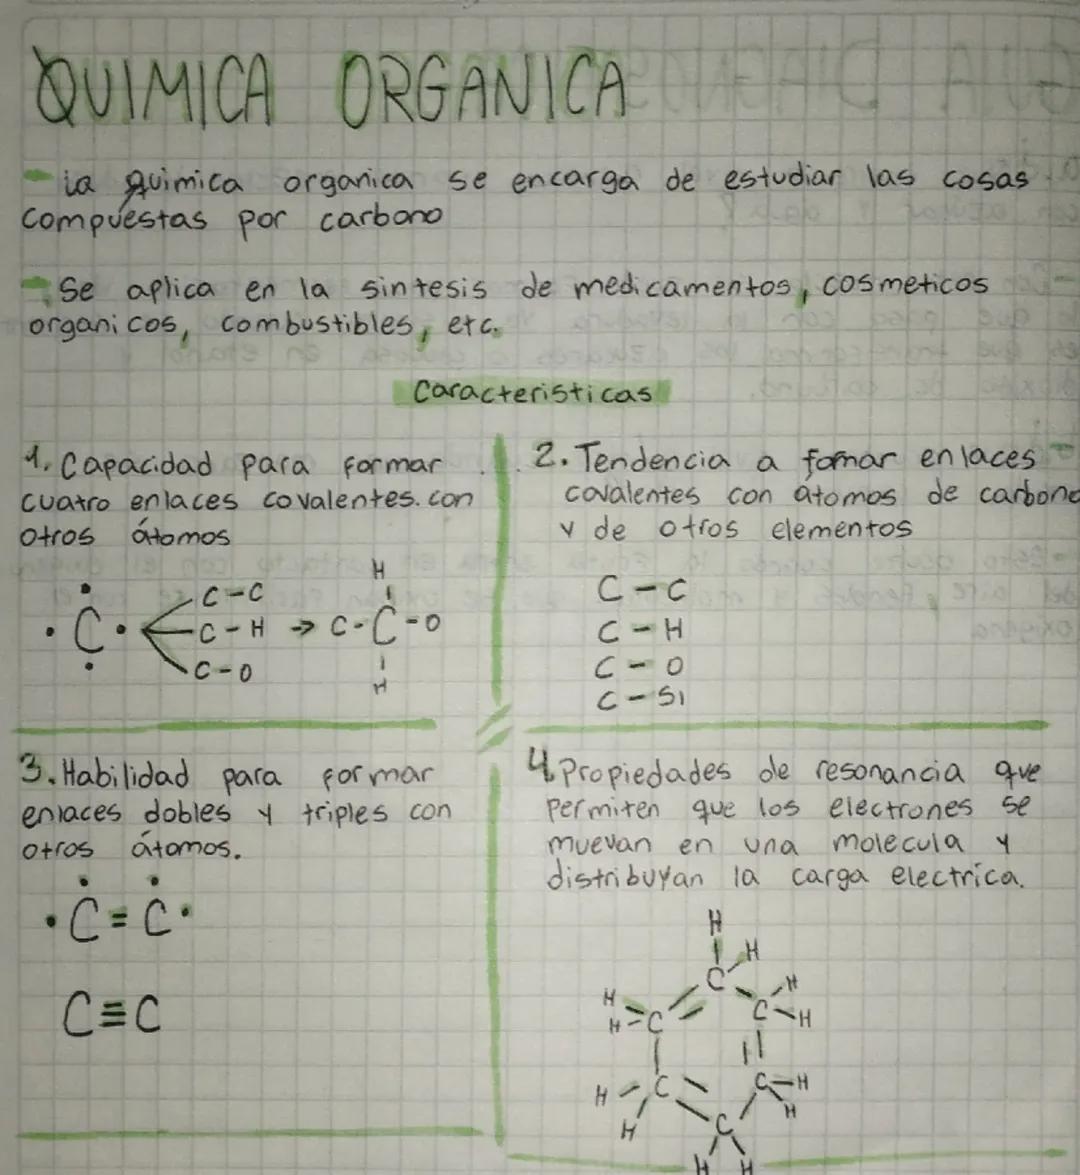 QUIMICA ORGANICA
- La quimica organica se encarga de estudiar las cosas
compuestas por carbono
- Se aplica en la sintesis de medicamentos, cosmeticos
organicos, combustibles, etc.
Caracteristicas
1. Capacidad para formar
cuatro enlaces covalentes. con
otros átomos
C
C-C
C-H
C-O
→
H
C-C-O
H
2. Tendencia a fomar enlaces
covalentes con átomos de carbono
y de otros elementos
C-C
C-H
C-O
C-Si
3. Habilidad para formar
enlaces dobles y triples con
otros átomos.
C=C
C≡C
4. Propiedades de resonancia que
permiten que los electrones se
muevan en una molecula y
distribuyan la carga electrica.
H
H
C
H
H
C
H
H
C
H
C
H
H
C
H
H
C
H
H